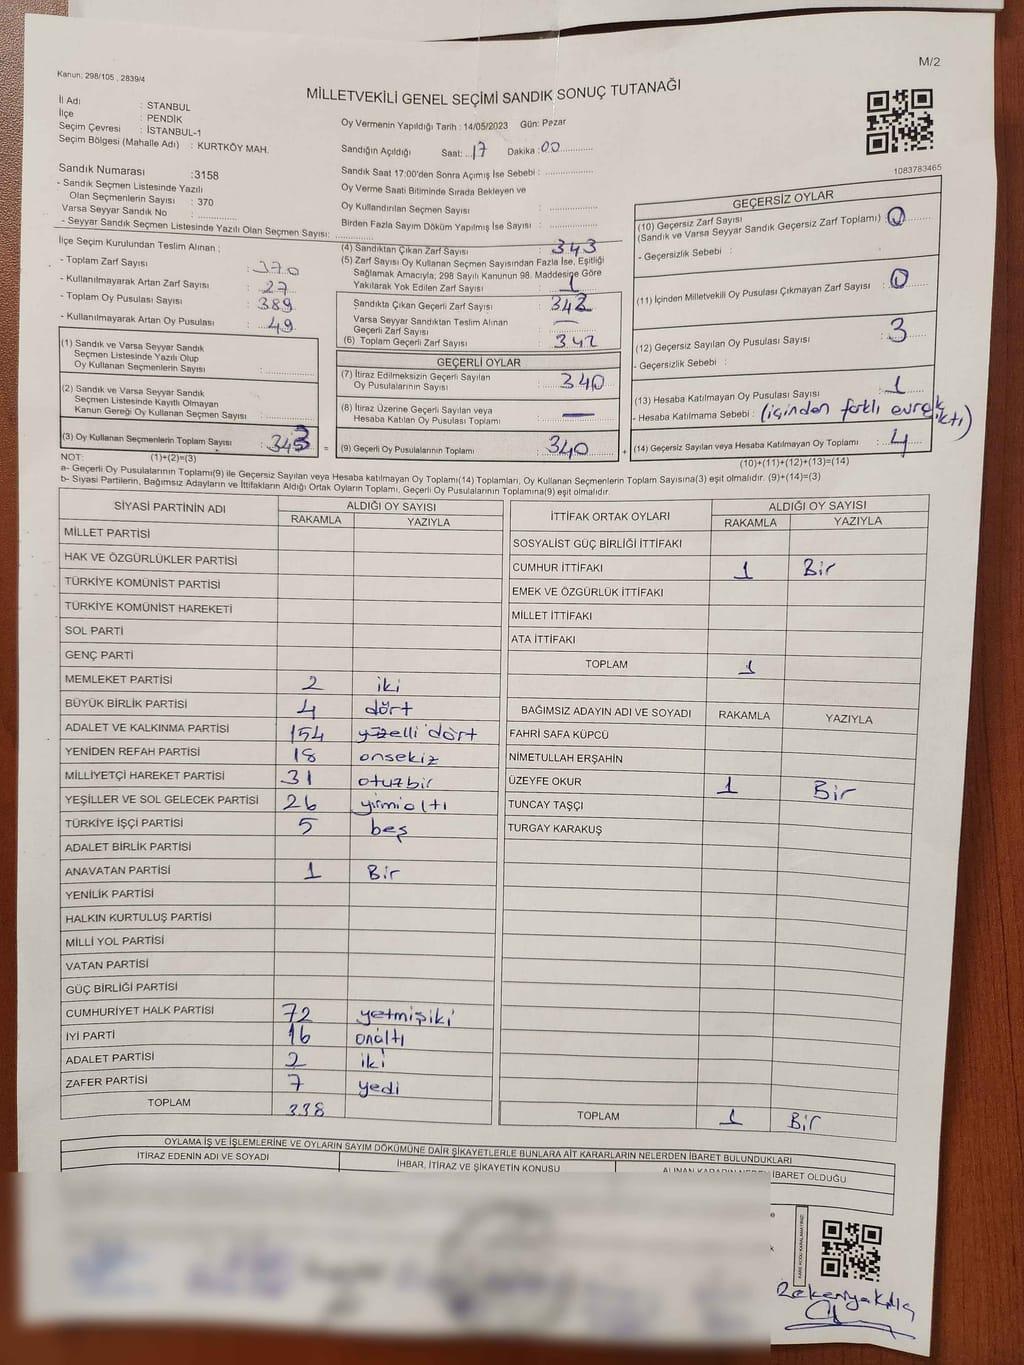 M/2
Kanun: 298/105 , 2839/4
MİLLETVEKİLİ GENEL SEÇİMİ SANDIK SONUÇ TUTANAĞI
İl Adı : STANBUL
İlçe : PENDİK
Seçim Çevresi : İSTANBUL-1
Seçim Bölgesi (Mahalle Adı) : KURTKÖY MAH.
Oy Vermenin Yapıldığı Tarih : 14/05/2023 Gün: Pazar
Sandığın Açıldığı Saat: 17 Dakika : 00
Sandık Saat 17:00'den Sonra Açımış İse Sebebi :
Oy Verme Saati Bitiminde Sırada Bekleyen ve
Oy Kullandırılan Seçmen Sayısı :
Birden Fazla Sayım Döküm Yapılmış İse Sayısı :
1083783465
Sandık Numarası :3158
- Sandık Seçmen Listesinde Yazılı
Olan Seçmenlerin Sayısı : 370
Varsa Seyyar Sandık No :
- Seyyar Sandık Seçmen Listesinde Yazılı Olan Seçmen Sayısı:
İlçe Seçim Kurulundan Teslim Alınan ;
- Toplam Zarf Sayısı : 370
- Kullanılmayarak Artan Zarf Sayısı : 27
- Toplam Oy Pusulası Sayısı : 389
- Kullanılmayarak Artan Oy Pusulası : 49
(1) Sandık ve Varsa Seyyar Sandık
Seçmen Listesinde Yazılı Olup
Oy Kullanan Seçmenlerin Sayısı :
(2) Sandık ve Varsa Seyyar Sandık
Seçmen Listesinde Kayıtlı Olmayan
Kanun Gereği Oy Kullanan Seçmen Sayısı :
(3) Oy Kullanan Seçmenlerin Toplam Sayısı : 343 =
(4) Sandıktan Çıkan Zarf Sayısı : 343
(5) Zarf Sayısı Oy Kullanan Seçmen Sayısından Fazla İse, Eşitliği
Sağlamak Amacıyla; 298 Sayılı Kanunun 98. Maddesine Göre
Yakılarak Yok Edilen Zarf Sayısı : 1
Sandıkta Çıkan Geçerli Zarf Sayısı : 342
Varsa Seyyar Sandıktan Teslim Alınan
Geçerli Zarf Sayısı : —
(6) Toplam Geçerli Zarf Sayısı : 342
GEÇERLİ OYLAR
(7) İtiraz Edilmeksizin Geçerli Sayılan
Oy Pusulalarının Sayısı : 340
(8) İtiraz Üzerine Geçerli Sayılan veya
Hesaba Katılan Oy Pusulası Toplamı : —
(9) Geçerli Oy Pusulalarının Toplamı : 340 +
GEÇERSİZ OYLAR
(10) Geçersiz Zarf Sayısı
(Sandık ve Varsa Seyyar Sandık Geçersiz Zarf Toplamı) : 0
- Geçersizlik Sebebi :
(11) İçinden Milletvekili Oy Pusulası Çıkmayan Zarf Sayısı : 0
(12) Geçersiz Sayılan Oy Pusulası Sayısı : 3
- Geçersizlik Sebebi :
(13) Hesaba Katılmayan Oy Pusulası Sayısı : 1
- Hesaba Katılmama Sebebi : (içinden farklı evrak çıktı)
(14) Geçersiz Sayılan veya Hesaba Katılmayan Oy Toplamı : 4
NOT: (1)+(2)=(3)
(10)+(11)+(12)+(13)=(14)
a- Geçerli Oy Pusulalarının Toplamı(9) ile Geçersiz Sayılan veya Hesaba katılmayan Oy Toplamı(14) Toplamları, Oy Kullanan Seçmenlerin Toplam Sayısına(3) eşit olmalıdır. (9)+(14)=(3)
b- Siyasi Partilerin, Bağımsız Adayların ve İttifakların Aldığı Ortak Oyların Toplamı, Geçerli Oy Pusulalarının Toplamına(9) eşit olmalıdır.
SİYASİ PARTİNİN ADI ALDIĞI OY SAYISI
RAKAMLA YAZIYLA
MİLLET PARTİSİ
HAK VE ÖZGÜRLÜKLER PARTİSİ
TÜRKİYE KOMÜNİST PARTİSİ
TÜRKİYE KOMÜNİST HAREKETİ
SOL PARTİ
GENÇ PARTİ
MEMLEKET PARTİSİ 2 iki
BÜYÜK BİRLİK PARTİSİ 4 dört
ADALET VE KALKINMA PARTİSİ 154 yüzelli dört
YENİDEN REFAH PARTİSİ 18 onsekiz
MİLLİYETÇİ HAREKET PARTİSİ 31 otuzbir
YEŞİLLER VE SOL GELECEK PARTİSİ 26 yirmialtı
TÜRKİYE İŞÇİ PARTİSİ 5 beş
ADALET BİRLİK PARTİSİ
ANAVATAN PARTİSİ 1 Bir
YENİLİK PARTİSİ
HALKIN KURTULUŞ PARTİSİ
MİLLİ YOL PARTİSİ
VATAN PARTİSİ
GÜÇ BİRLİĞİ PARTİSİ
CUMHURİYET HALK PARTİSİ 72 yetmişiki
İYİ PARTİ 16 onaltı
ADALET PARTİSİ 2 iki
ZAFER PARTİSİ 7 yedi
TOPLAM 338
İTTİFAK ORTAK OYLARI ALDIĞI OY SAYISI
RAKAMLA YAZIYLA
SOSYALİST GÜÇ BİRLİĞİ İTTİFAKI
CUMHUR İTTİFAKI 1 Bir
EMEK VE ÖZGÜRLÜK İTTİFAKI
MİLLET İTTİFAKI
ATA İTTİFAKI
TOPLAM 1
BAĞIMSIZ ADAYIN ADI VE SOYADI RAKAMLA YAZIYLA
FAHRİ SAFA KÜPCÜ
NİMETULLAH ERŞAHİN
ÜZEYFE OKUR 1 Bir
TUNCAY TAŞÇI
TURGAY KARAKUŞ
TOPLAM 1 Bir
OYLAMA İŞ VE İŞLEMLERİNE VE OYLARIN SAYIM DÖKÜMÜNE DAİR ŞİKAYETLERLE BUNLARA AİT KARARLARIN NELERDEN İBARET BULUNDUKLARI
İTİRAZ EDENİN ADI VE SOYADI İHBAR, İTİRAZ VE ŞİKAYETİN KONUSU ALINAN KARARIN NEDEN İBARET OLDUĞU
KARE KODU KARALAMAYINIZ!
Zekeriya Kılıç